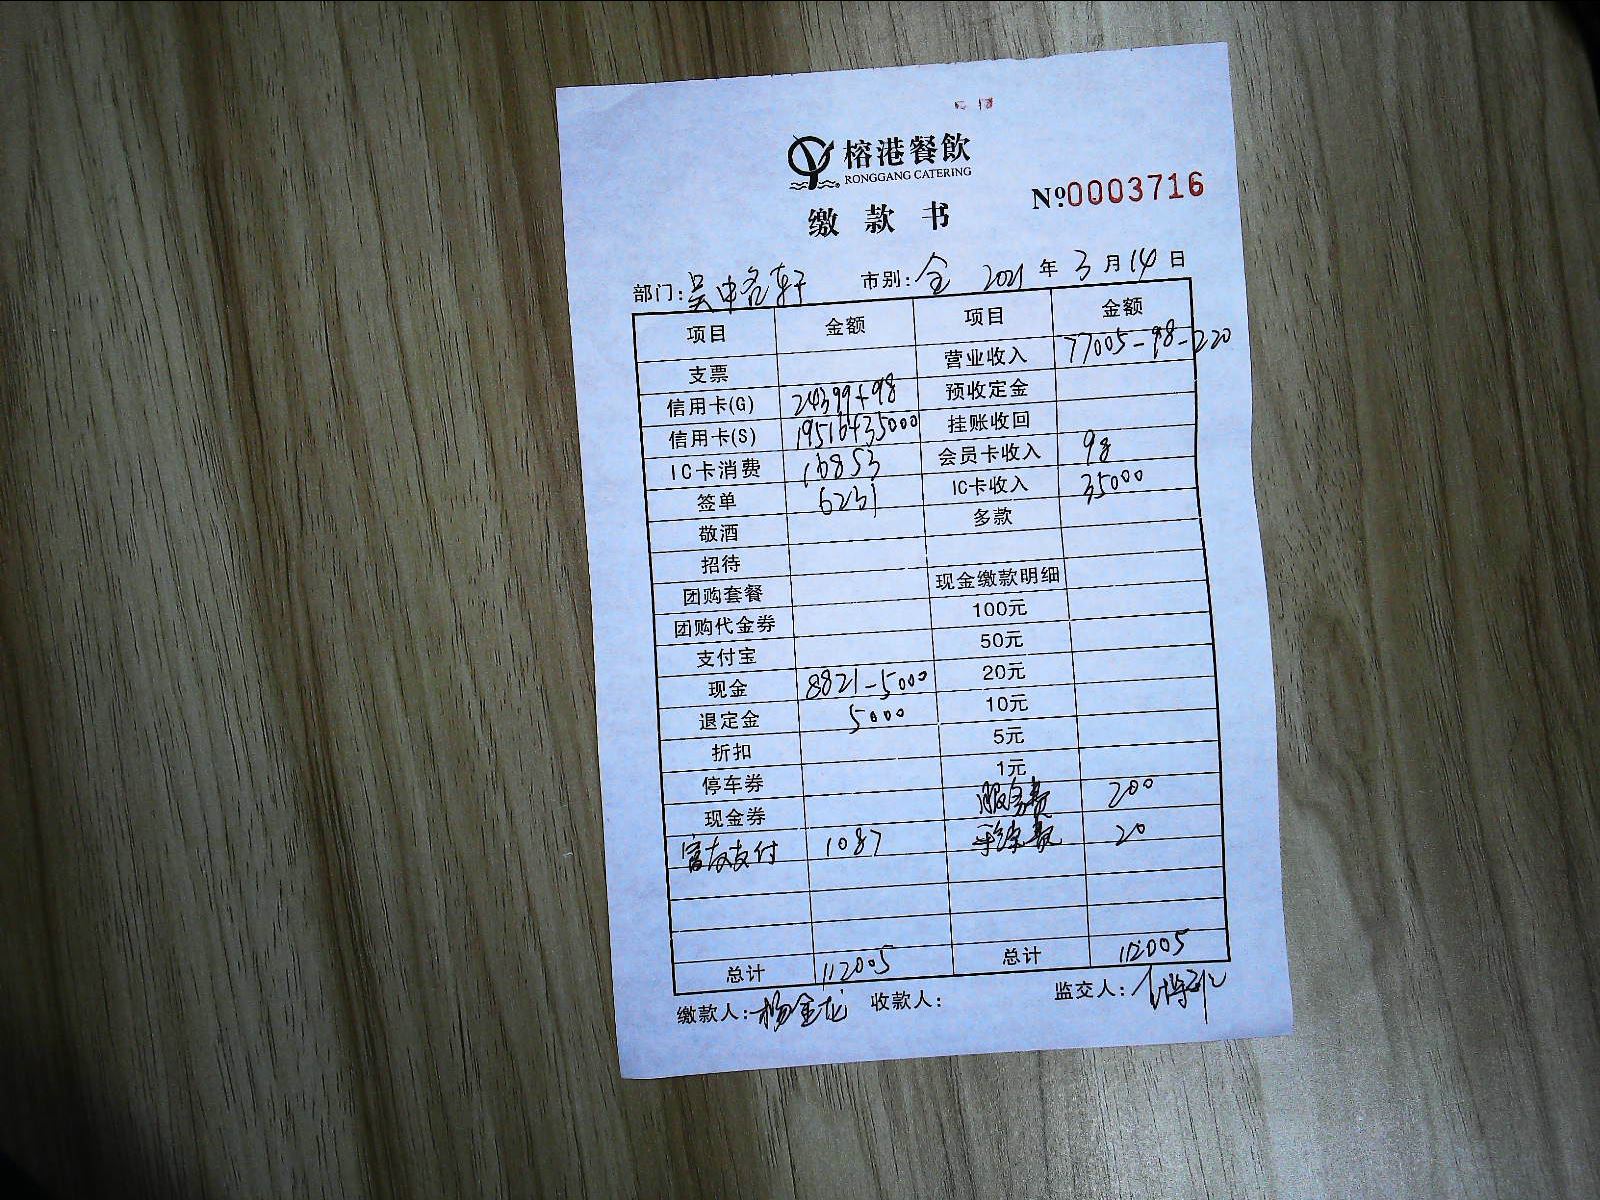 榕港餐飲
RONGGANG CATERING
缴款书
Nº0003716
部门:吴中名轩 市别:全 2021年3月14日
项目 金额 项目 金额
支票 营业收入 77005-98-220
信用卡(G) 24399+98 预收定金
信用卡(S) 19516+35000 挂账收回
IC卡消费 16853 会员卡收入 98
签单 6231 IC卡收入 35000
敬酒 多款
招待
团购套餐 现金缴款明细
团购代金券 100元
支付宝 50元
现金 8821-5000 20元
退定金 5000 10元
折扣 5元
停车券 1元
现金券 服务费 200
富友支付 1087 手续费 20
总计 112005 总计 112005
缴款人:杨金龙 收款人: 监交人: